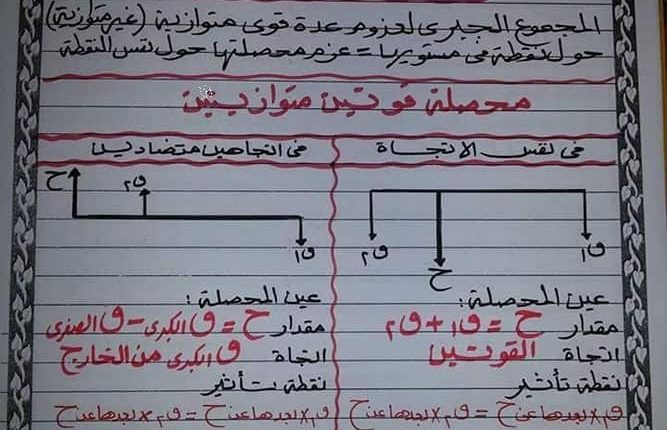 المجموع الجبرى لعزوم عدة قوى متوازية (غير متوازية)
حول نقطة فى مستويها = عزم محصلتها حول نفس النقطة
محصلة قوتين متوازيتين
فى نفس الاتجاة
ق١
ق٢
ح
عين المحصلة :
مقدار ح = ق١ + ق٢
اتجاة القوتين
نقطة تأثير
ق١ × بعدها عن ح = ق٢ × بعدها عن ح
فى اتجاهين متضادين
ح
ق٢
ق١
عين المحصلة :
مقدار ح = ق الكبرى - ق الصغرى
اتجاة ق الكبرى من الخارج
نقطة تأثير
ق١ × بعدها عن ح = ق٢ × بعدها عن ح